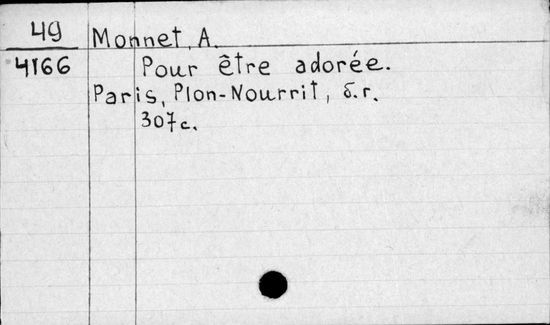 49
Monnet, A.
4166
Pour être adorée.
Paris, Plon-Nourrit, б.г.
307с.